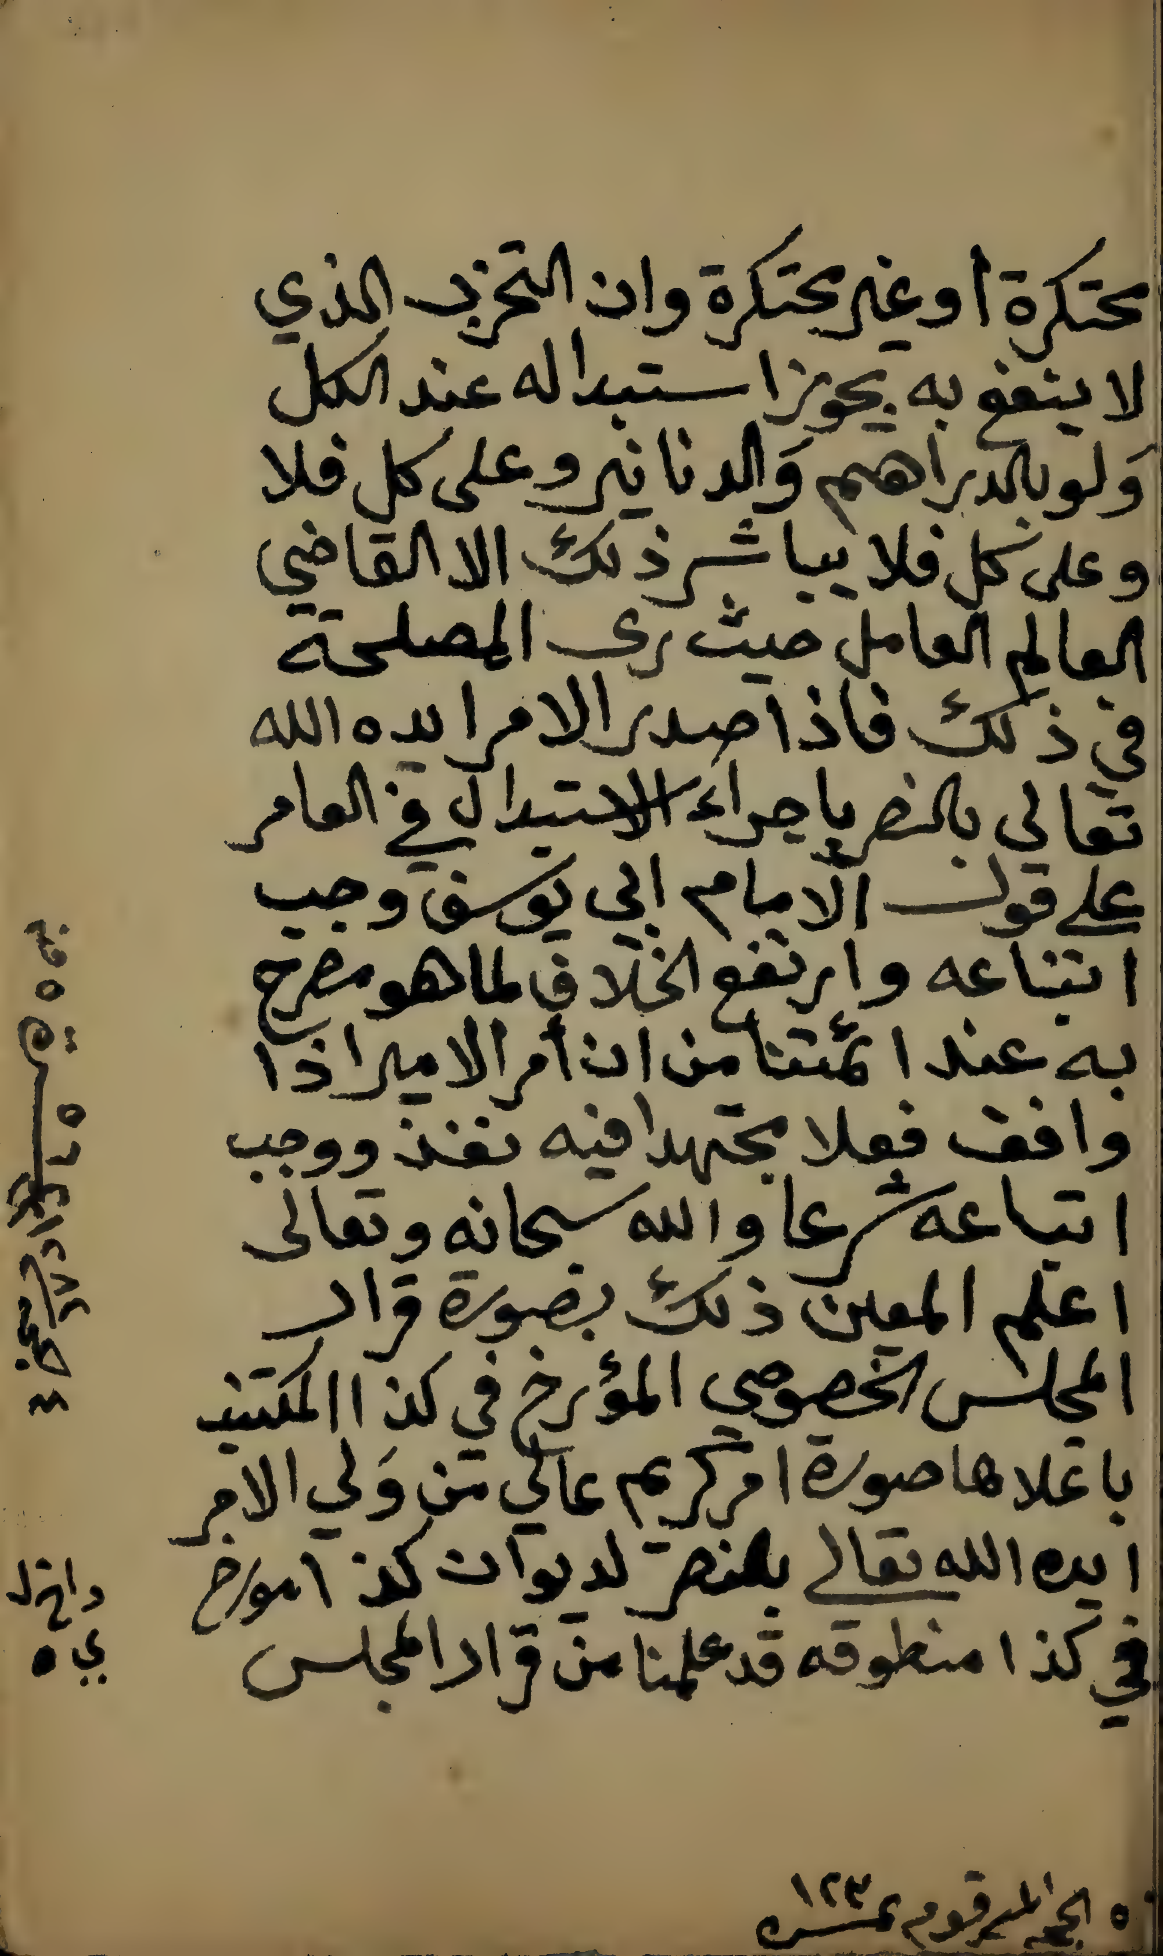 محتكرة أو غير محتكرة وان التخرب الذي
لا ينتفع به يجوز استبداله عند الكل
وَلو بالدراهم وَالدنانير وعلى كل فلا
وعلى كل فلا يباشر ذلك الا القاضي
العالم العامل حيث رى المصلحة
في ذلك فاذا صدر الامر ايده الله
تعالى بالنصر بإجراء الاستبدال في العامر
على قول الامام ابي يوسف وجب
اتباعه وارتفع الخلاف لما هو مصرح
به عند ائمتنا من ان أمر الامير اذا
وافق فعلا مجتهدا فيه نفذ ووجب
اتباعه شرعا والله سبحانه وتعالى
اعلم المعين ذلك بصورة قرار
المجلس الخصوصي المؤرخ في كذا المكتتب
باعلاها صورة امر كريم عالي من وَلي الامر
ايده الله تعالى بالنصر لديوان كذا مورخ
في كذا منطوقه قد علمنا من قرار المجلس
المرقوم
١٢٣